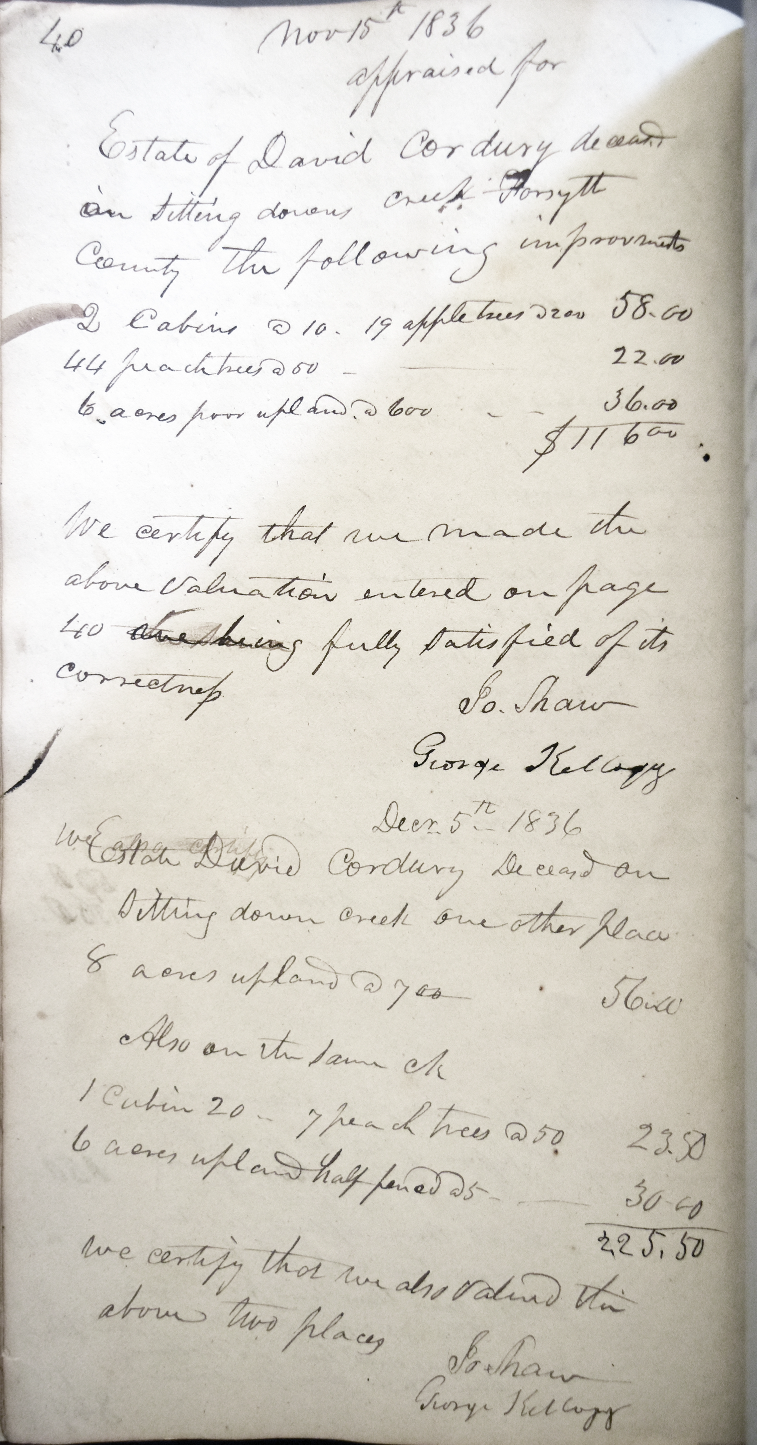 40
Nov 15th 1836
appraised for
Estate of David Cordury deceasd
on Sitting downs creek Forsyth
County the following improvments
2 Cabins @ 10 - 19 apple trees @ 200 58.00
44 peach trees @ 50 - 22.00
6 acres poor upland @ 600 - - 36.00
$116 00
We certify that we made the
above valuation entered on page
40 being fully satisfied of its
correctness
Jo. Shaw
George Kellogg
Decr. 5th 1836
we
Estate David Cordury Deceasd on
Sitting down creek one other place
8 acres upland @ 700 56.00
Also on the same ck
1 Cabin 20 - 7 peach trees @ 50 23.50
6 acres upland half fenced @ 5 - 30.00
225.50
we certify that we also valued the
above two places
Jo. Shaw
George Kellogg